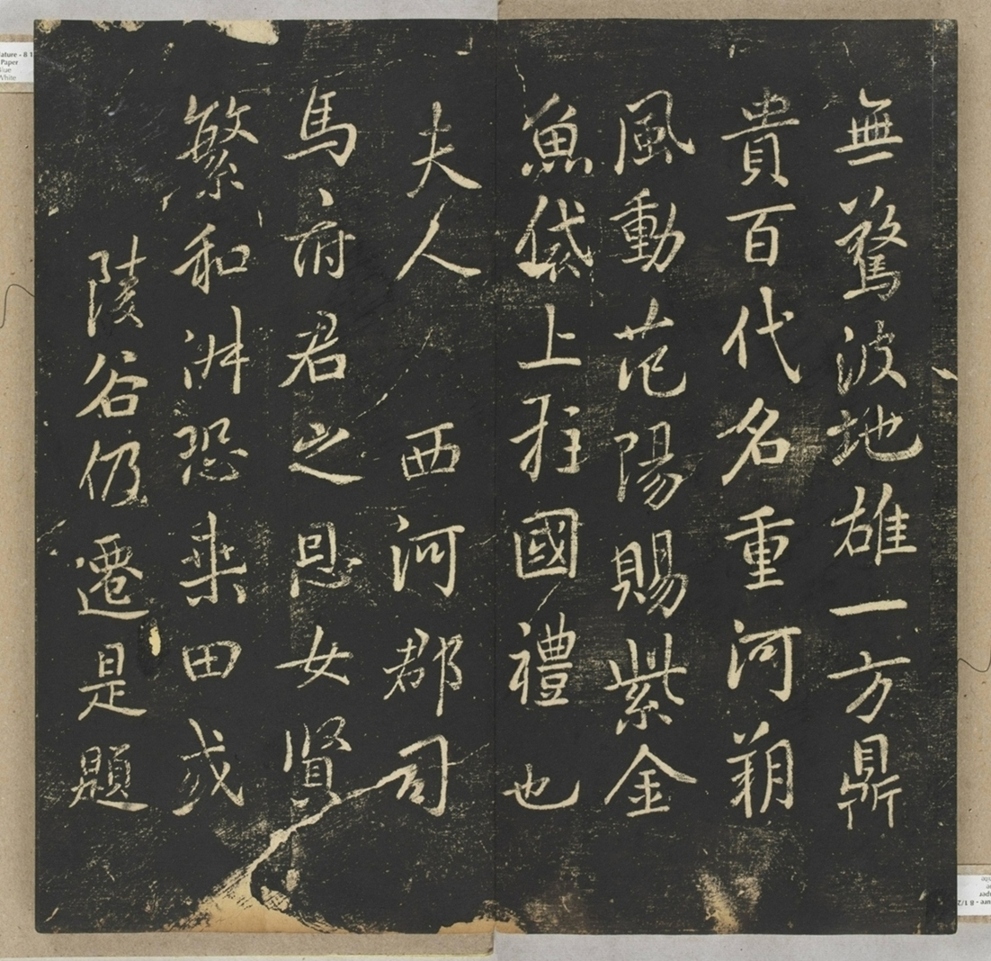 無驚波地雄一方鼎
貴百代名重河朔
風動范陽賜紫金
魚袋上柱國禮也
夫人 西河郡司
馬府君之恩女賢
繁和淑恐桒田或
陵谷仍遷是題
Paper
White